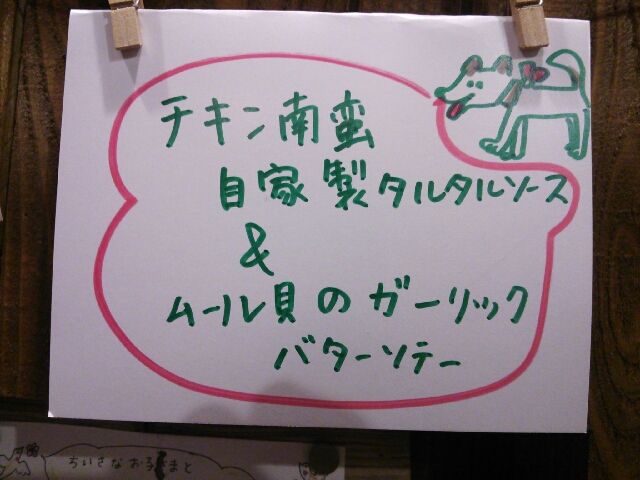 チキン南蛮
自家製タルタルソース
&
ムール貝のガーリック
バターソテー
ちいさなお子さまと